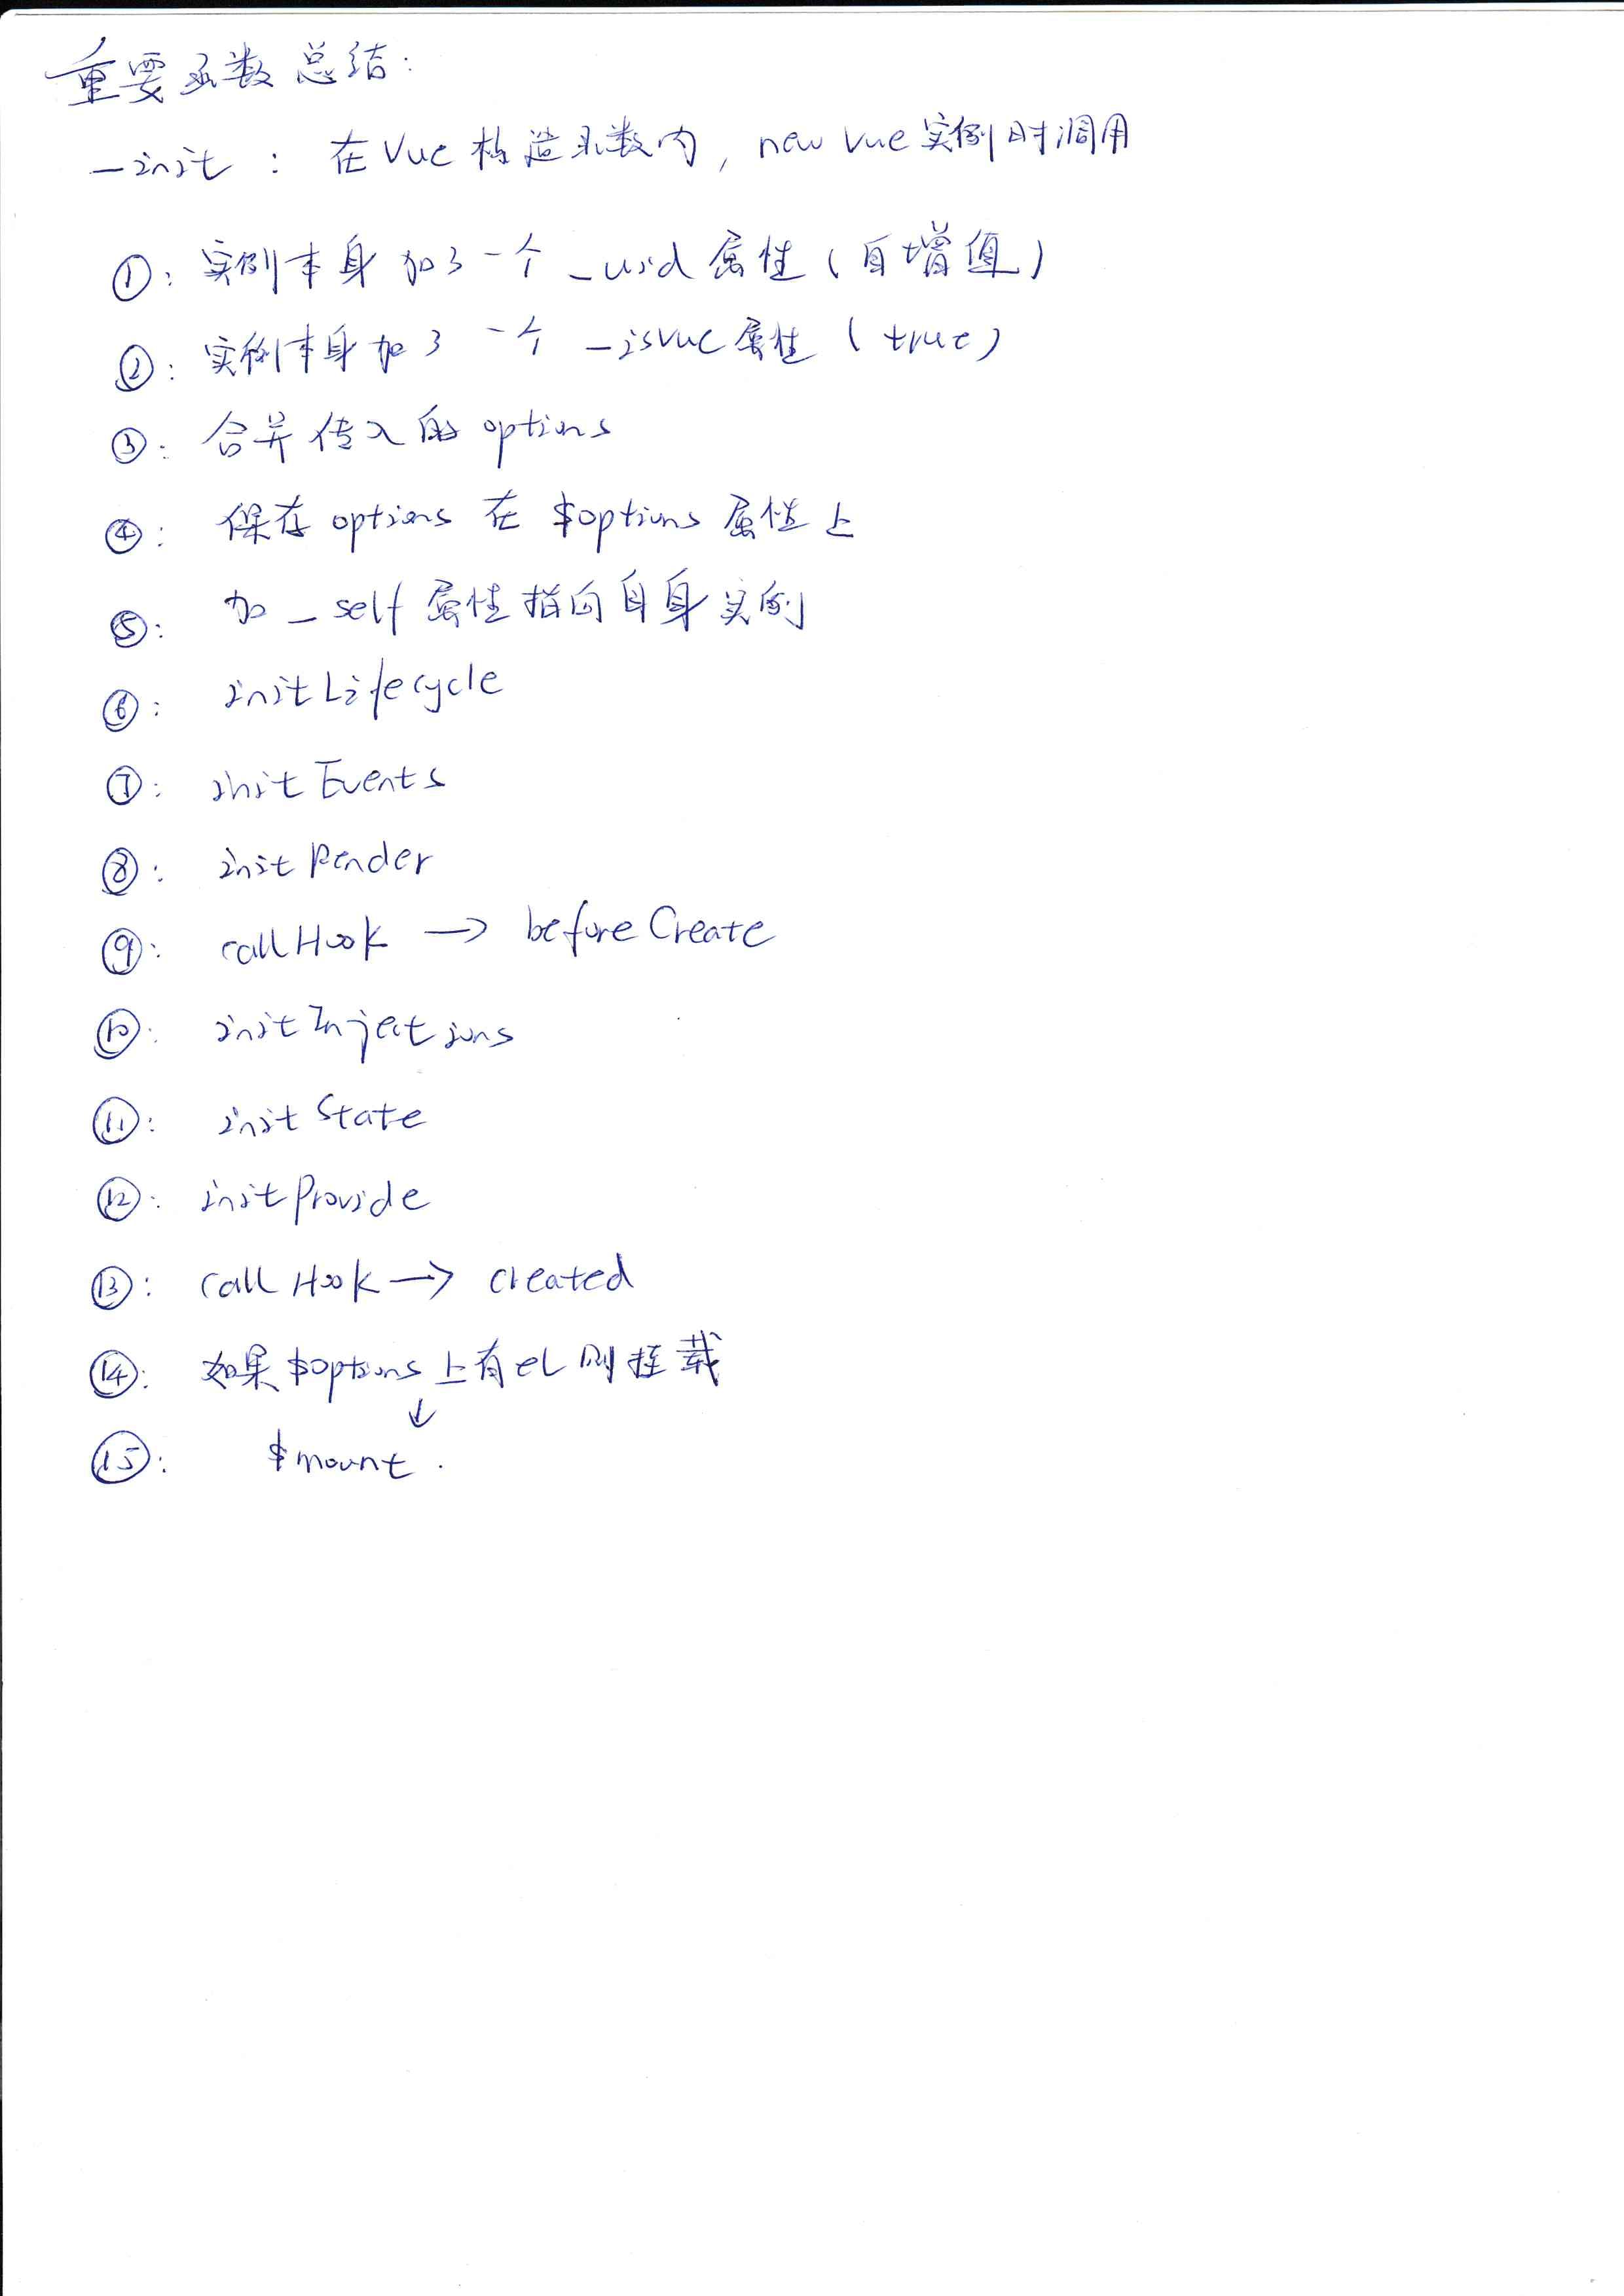 重要函数总结:
_init : 在Vue构造函数内, new Vue实例时调用
①: 实例本身加了一个_uid属性(自增值)
②: 实例本身加了一个_isVue属性(true)
③: 合并传入的options
④: 保存options在$options属性上
⑤: 加_self属性指向自身实例
⑥: initLifecycle
⑦: initEvents
⑧: initRender
⑨: callHook → beforeCreate
⑩: initInjections
⑪: initState
⑫: initProvide
⑬: callHook → created
⑭: 如果$options上有el则挂载
↓
⑮: $mount.